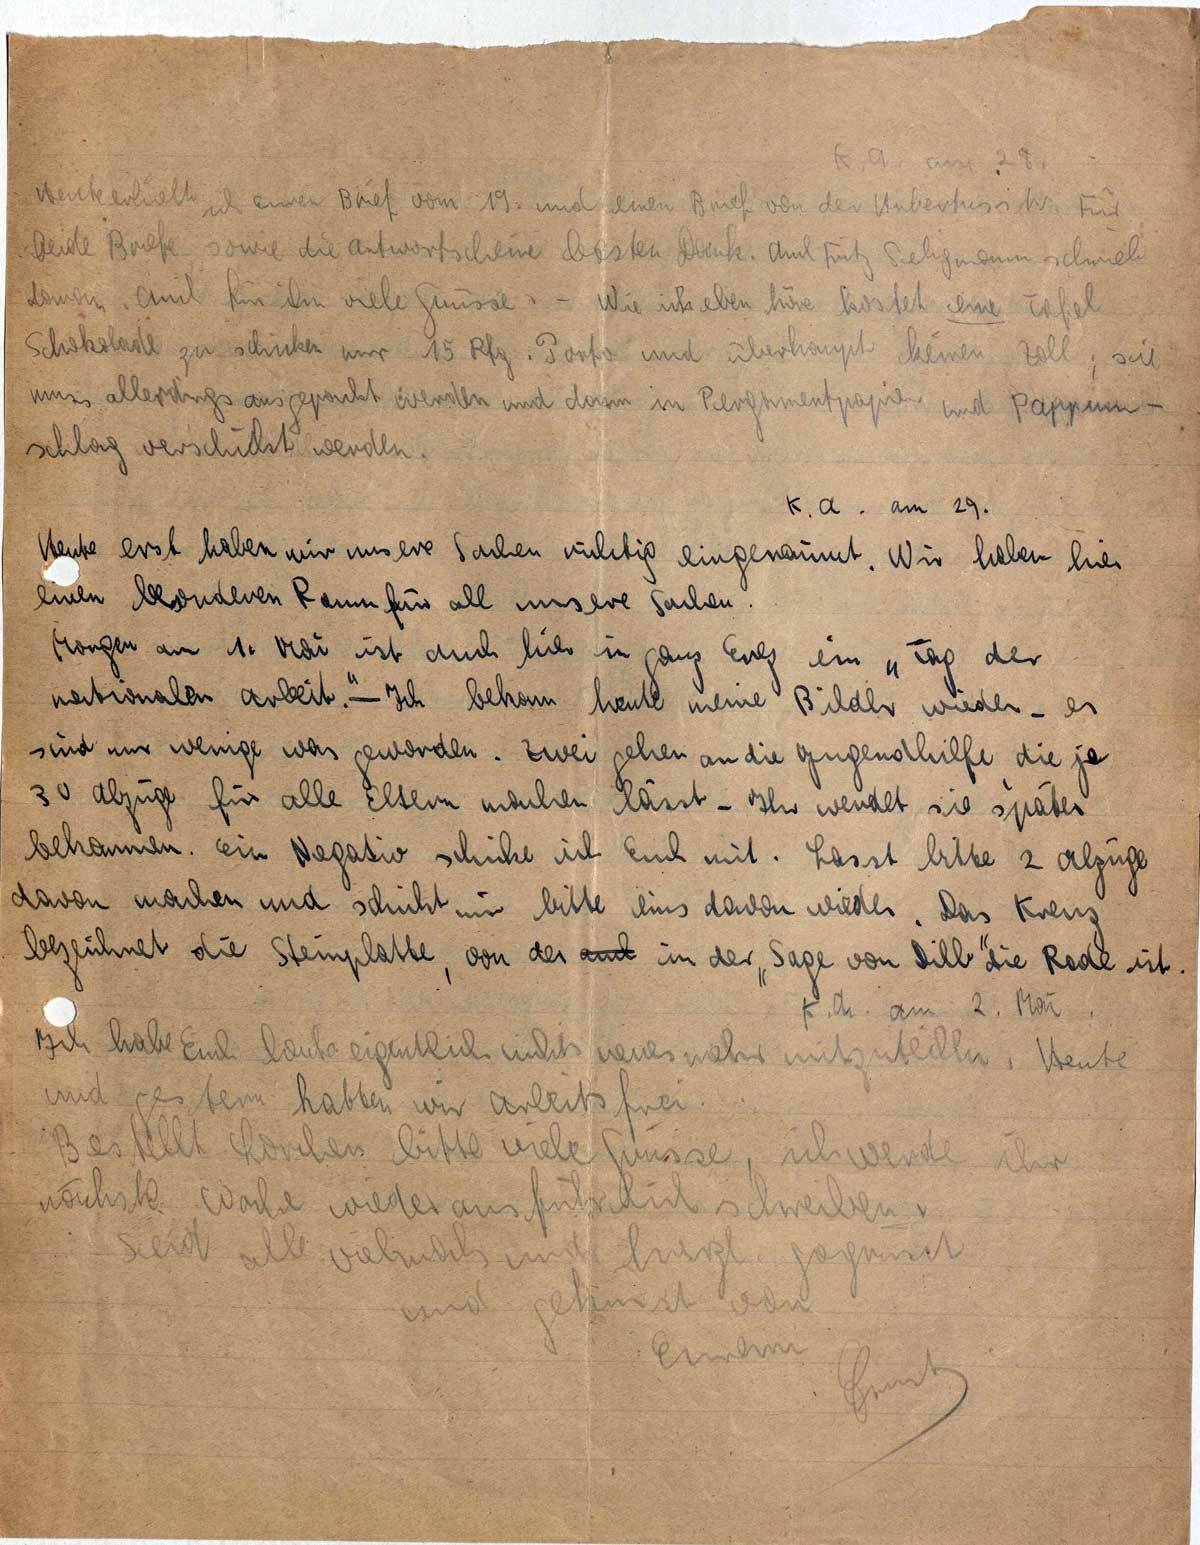 K. A. am 28.
Heute erhielt ich einen Brief vom 19. und einen Brief von der Überfahrt. Für
beide Briefe sowie die Antwortscheine besten Dank. Auch Fritz Seligmann schrieb
daran. Auch für ihn viele Grüsse. - Wie ich eben höre kostet eine Tafel
Schokolade zu schicken nur 15 Rfg. Porto und überhaupt keinen Zoll, sie
muss allerdings ausgepackt werden und dann in Pergamentpapier und Pappum-
schlag verschickt werden.
K. A. am 29.
Heute erst haben wir unsere Sachen richtig eingeräumt. Wir haben hier
einen besonderen Raum für all unsere Sachen.
Morgen am 1. Mai ist auch hier in ganz Erez ein „Tag der
nationalen Arbeit." - Ich bekam heute meine Bilder wieder - es
sind nur wenige was geworden. Zwei gehen an die Jugendhilfe, die je
30 Abzüge für alle Eltern machen lässt - Ihr werdet sie später
bekommen. Ein Negativ schicke ich Euch mit. Lasst bitte 2 Abzüge
davon machen und schickt mir bitte eins davon wieder. Das Kreuz
bezeichnet die Steinplatte, von der auch in der „Sage von Dilb" die Rede ist.
K. A. am 2. Mai.
Ich habe Euch heute eigentlich nichts neues mehr mitzuteilen. Heute
und gestern hatten wir arbeitsfrei.
Bestellt Lorchen bitte viele Grüsse, ich werde ihr
nächste Woche wieder ausführlich schreiben.
Seid alle vielmals und herzl. gegrüsst
und geküsst von
Eurem
Ernst